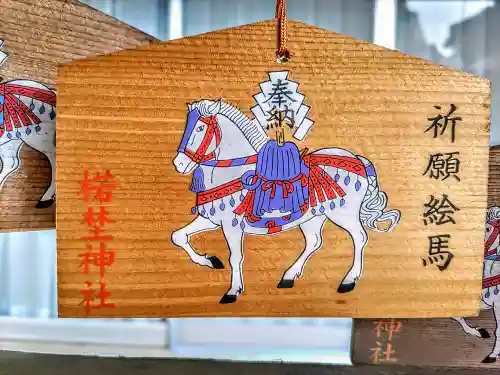 祈願絵馬
奉納
楉埜神社
神社